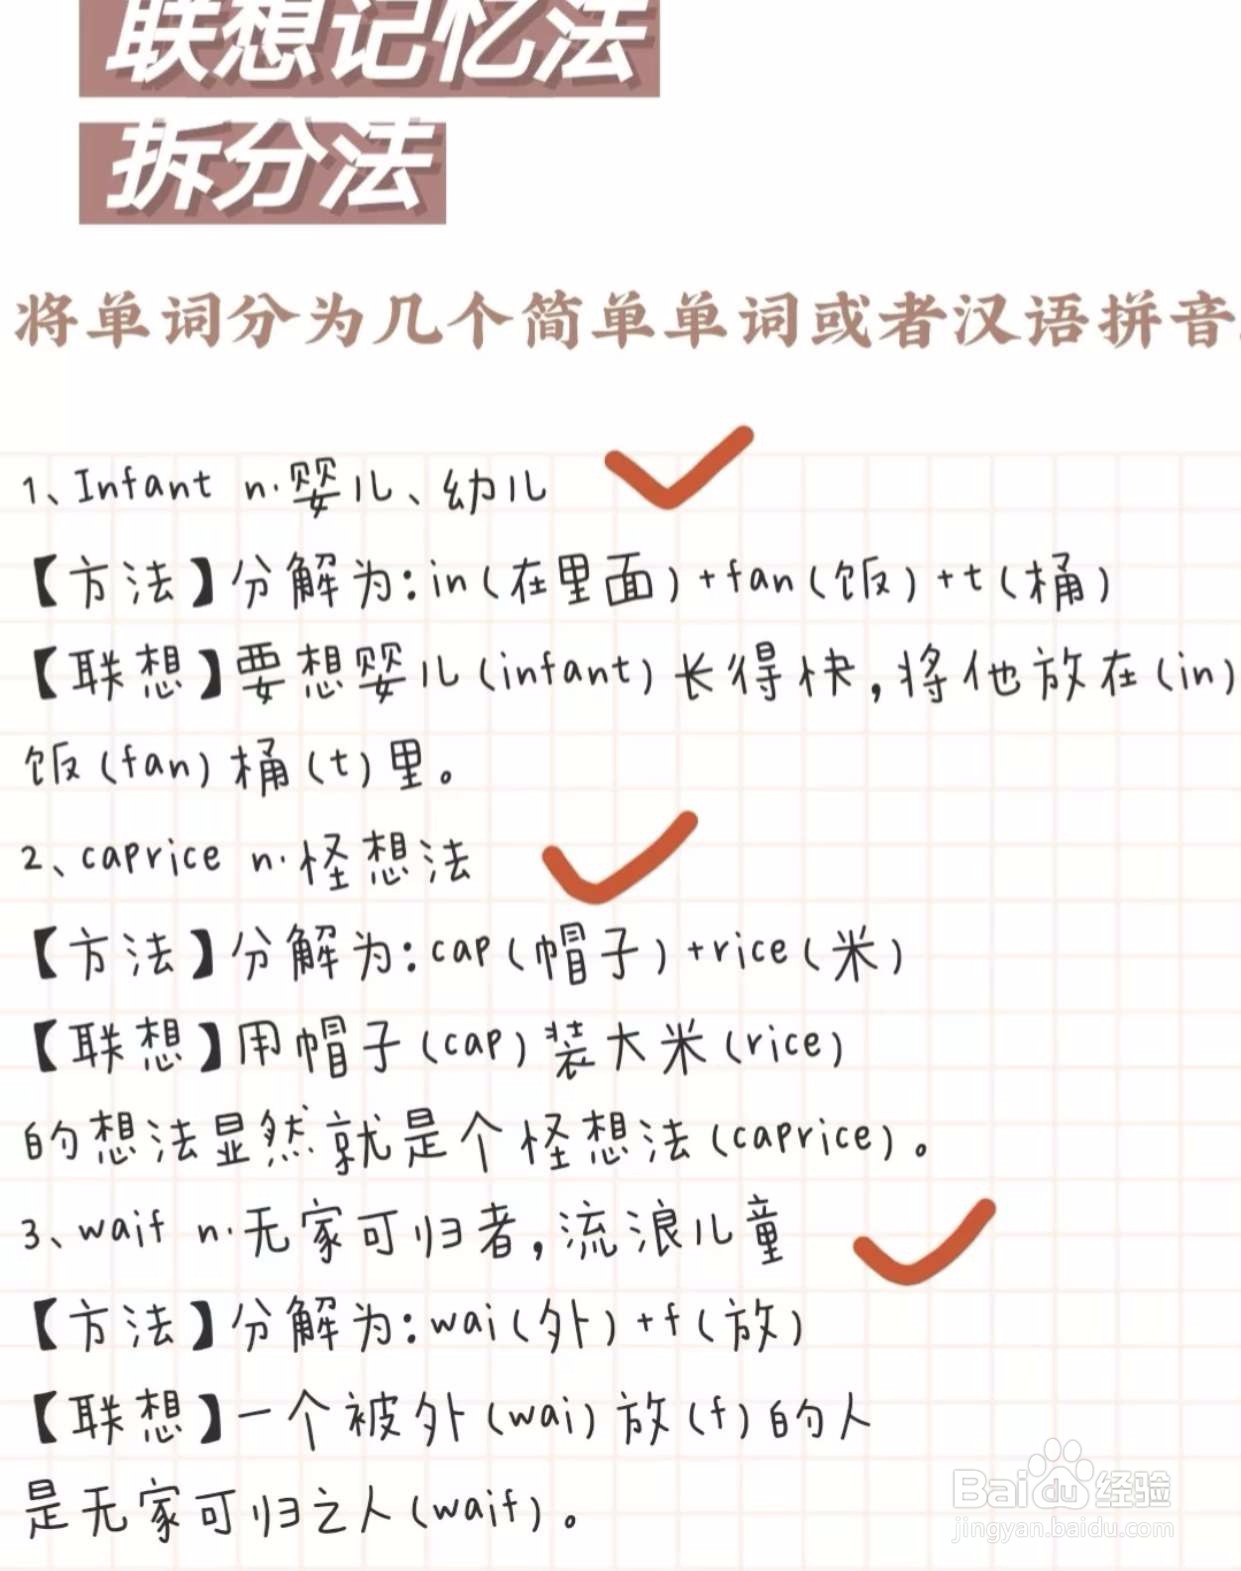 联想记忆法
拆分法
将单词分为几个简单单词或者汉语拼音
1、Infant n.婴儿、幼儿
【方法】分解为:in(在里面)+fan(饭)+t(桶)
【联想】要想婴儿(infant)长得快,将他放在(in)
饭(fan)桶(t)里。
2、caprice n.怪想法
【方法】分解为:cap(帽子)+rice(米)
【联想】用帽子(cap)装大米(rice)
的想法显然就是个怪想法(caprice)。
3、waif n.无家可归者,流浪儿童
【方法】分解为:wai(外)+f(放)
【联想】一个被外(wai)放(f)的人
是无家可归之人(waif)。
Baidu经验
jingyan.baidu.com